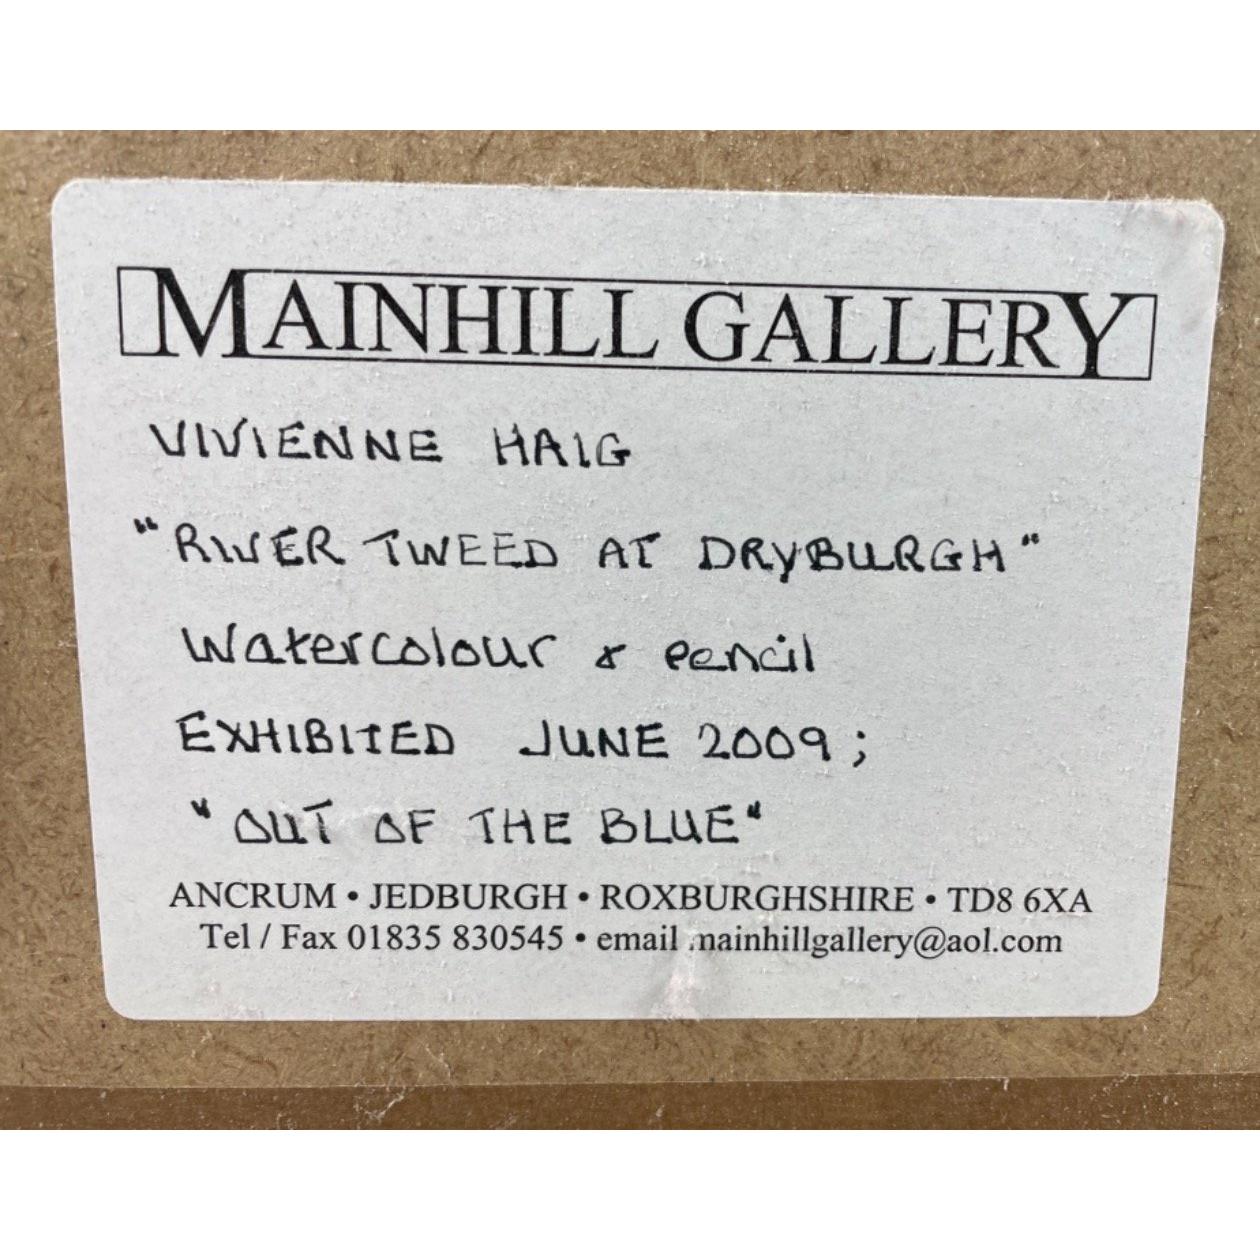 MAINHILL GALLERY
VIVIENNE HAIG
"RIVER TWEED AT DRYBURGH"
Watercolour & pencil
EXHIBITED JUNE 2009;
"OUT OF THE BLUE"
ANCRUM • JEDBURGH • ROXBURGHSHIRE • TD8 6XA
Tel / Fax 01835 830545 • email mainhillgallery@aol.com